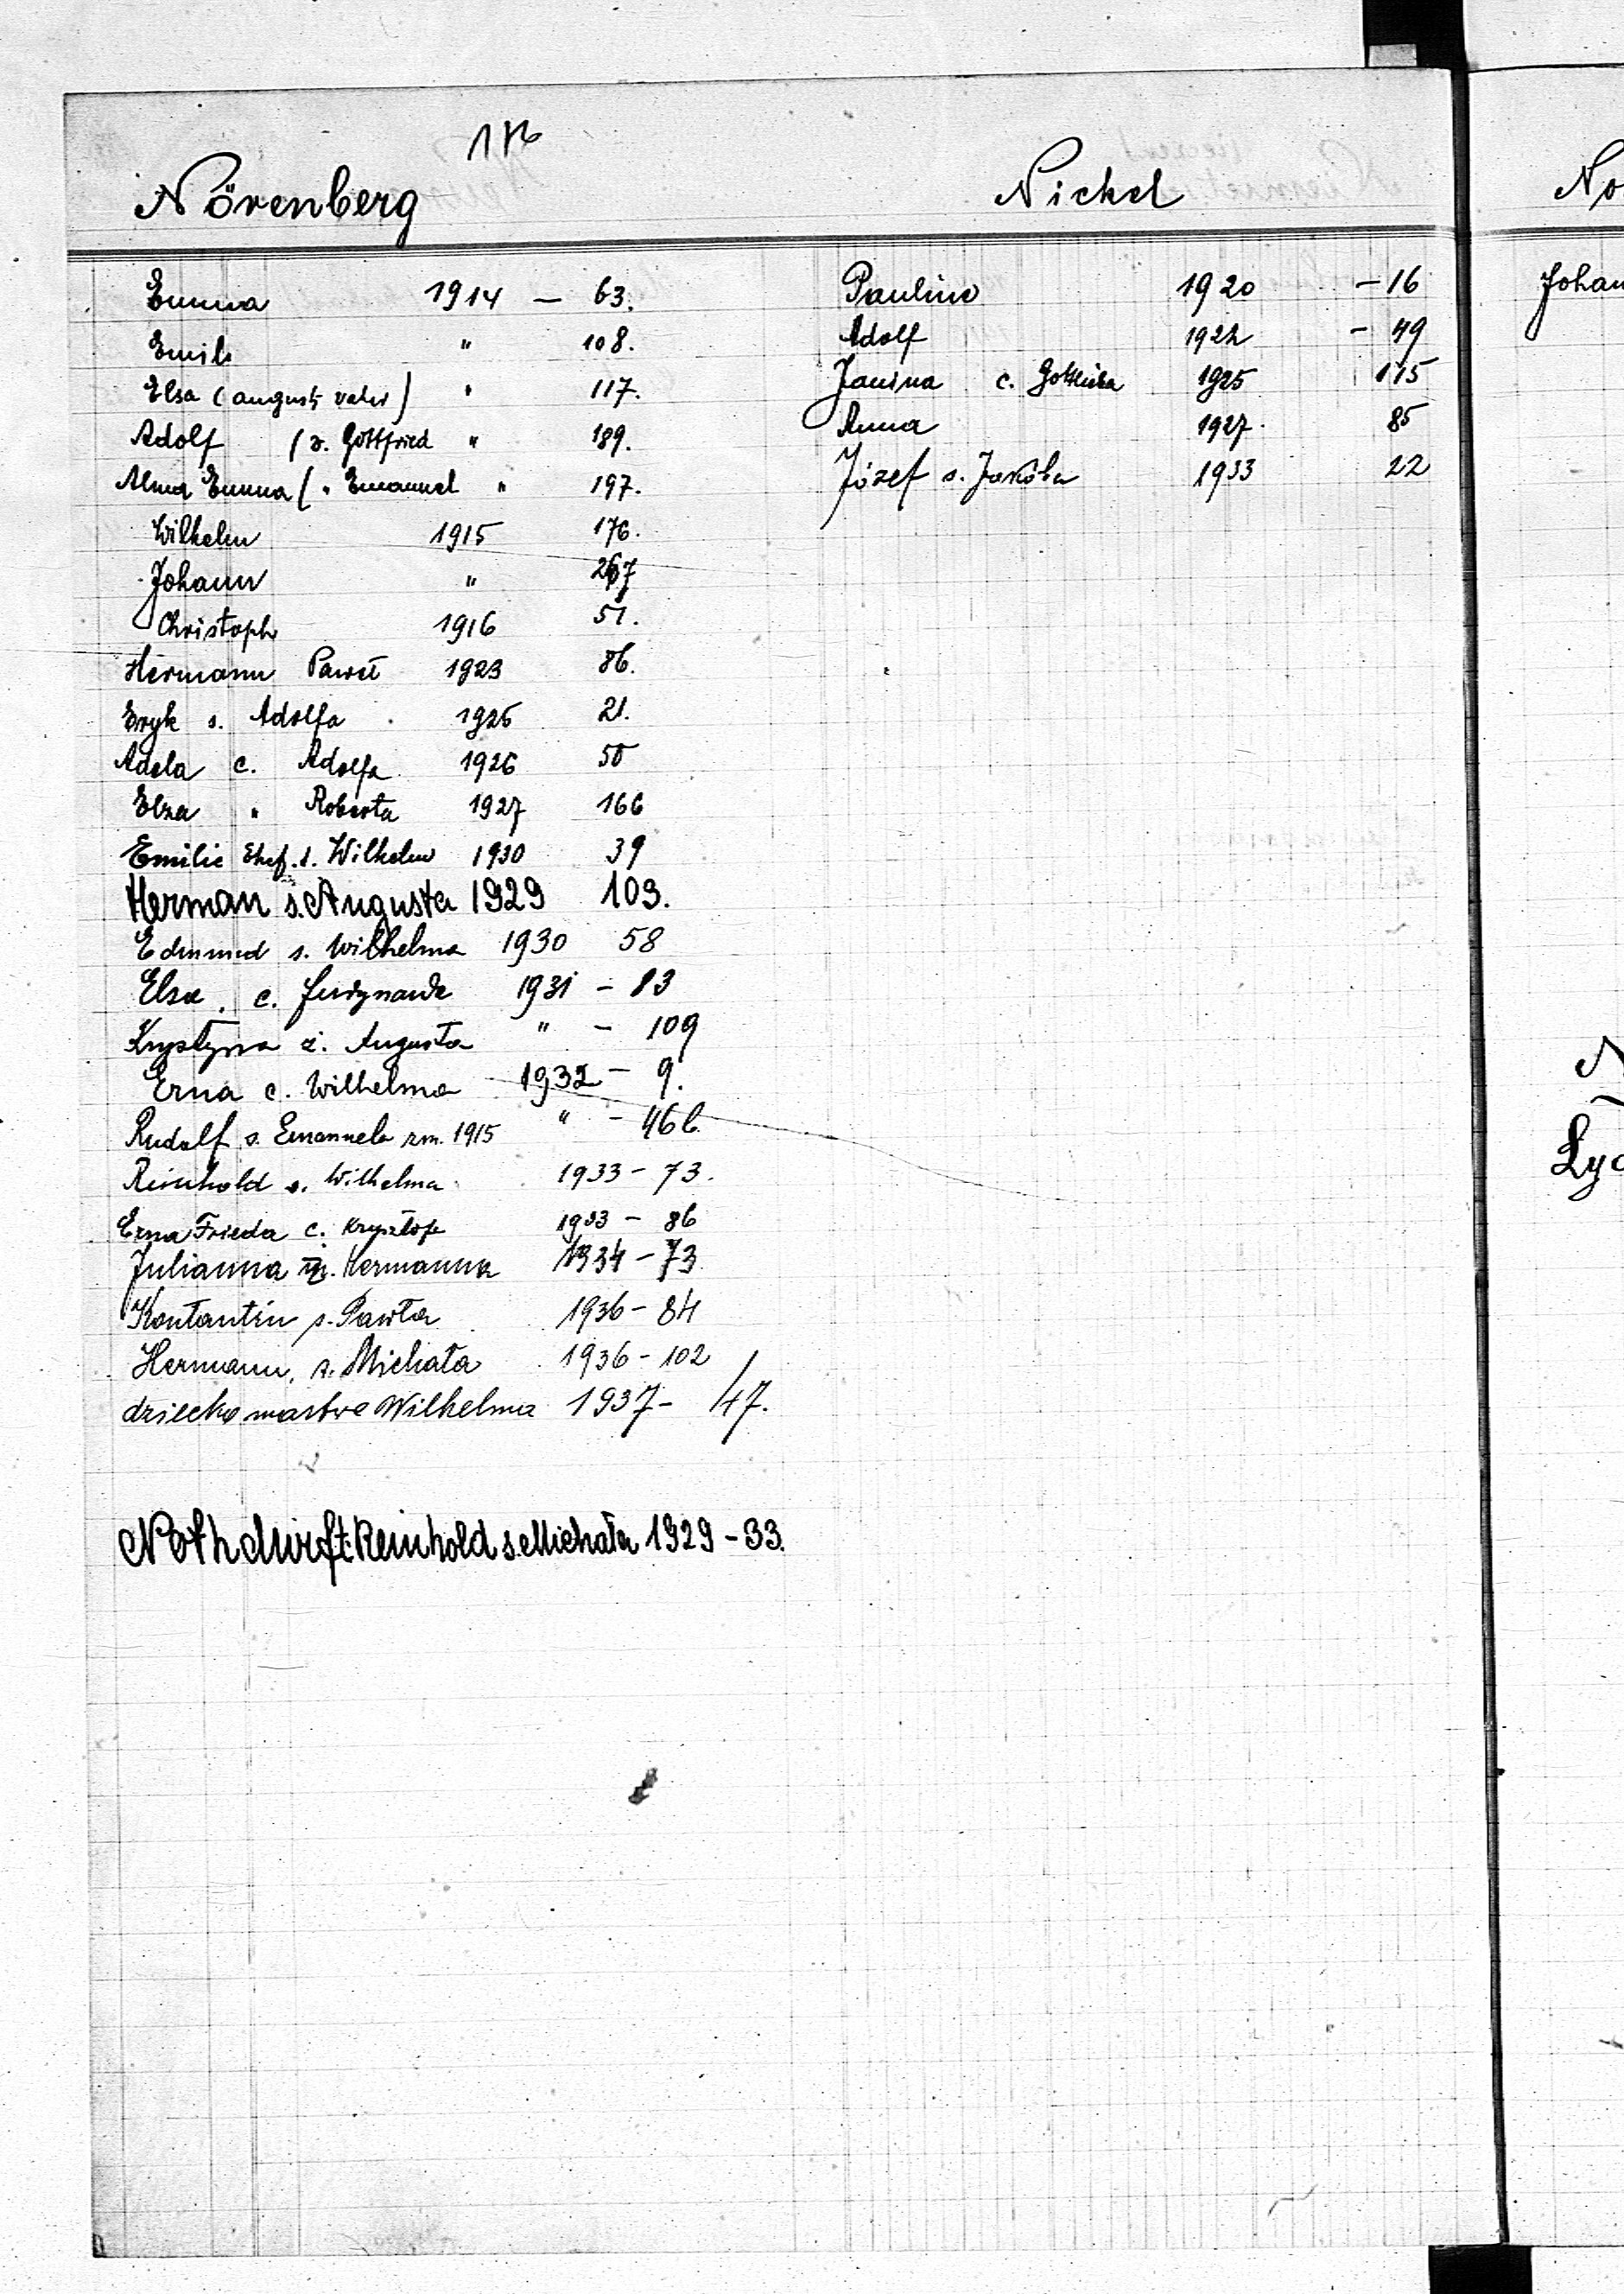 Nörenberg
Emma 1914 - 63.
Emil " 108.
Elsa (August vater) " 117.
Adolf (s. Gottfried " 189.
Alma Emma ( " Emanuel " 197.
Wilhelm 1915 176.
Johann " 267
Christoph 1916 51.
Hermann Paweł 1923 86.
Eryk s. Adolfa 1925 21.
Adela c. Adolfa 1926 50
Elza " Roberta 1927 166
Emilie Ehef. d. Wilhelm 1930 39
Herman s. Augusta 1929 103.
Edmund s. Wilhelma 1930 58
Elza c. Ferdynanda 1931 - 83
Krystyna ż. Augusta " - 109
Erna c. Wilhelma 1932 - 9.
Rudolf s. Emanuela zm. 1915 " - 46 b.
Reinhold s. Wilhelma 1933 - 73.
Erna Frieda c. Krysztofa 1933 - 86
Julianna ż. Hermanna 1934 - 73.
Kontantin s. Pawła 1936 - 84
Hermann, s. Michała 1936 - 102
dziecko martwe Wilhelma 1937 - 47.
Nothdurft: Reinhold s. Michała 1929 - 33.
Nickel
Pauline 1920 - 16
Adolf 1922 - 49
Janina c. Gottlieba 1925 175
Anna 1927. 85
Józef s. Jakóba 1933 22
No
Johan
N
Lyd